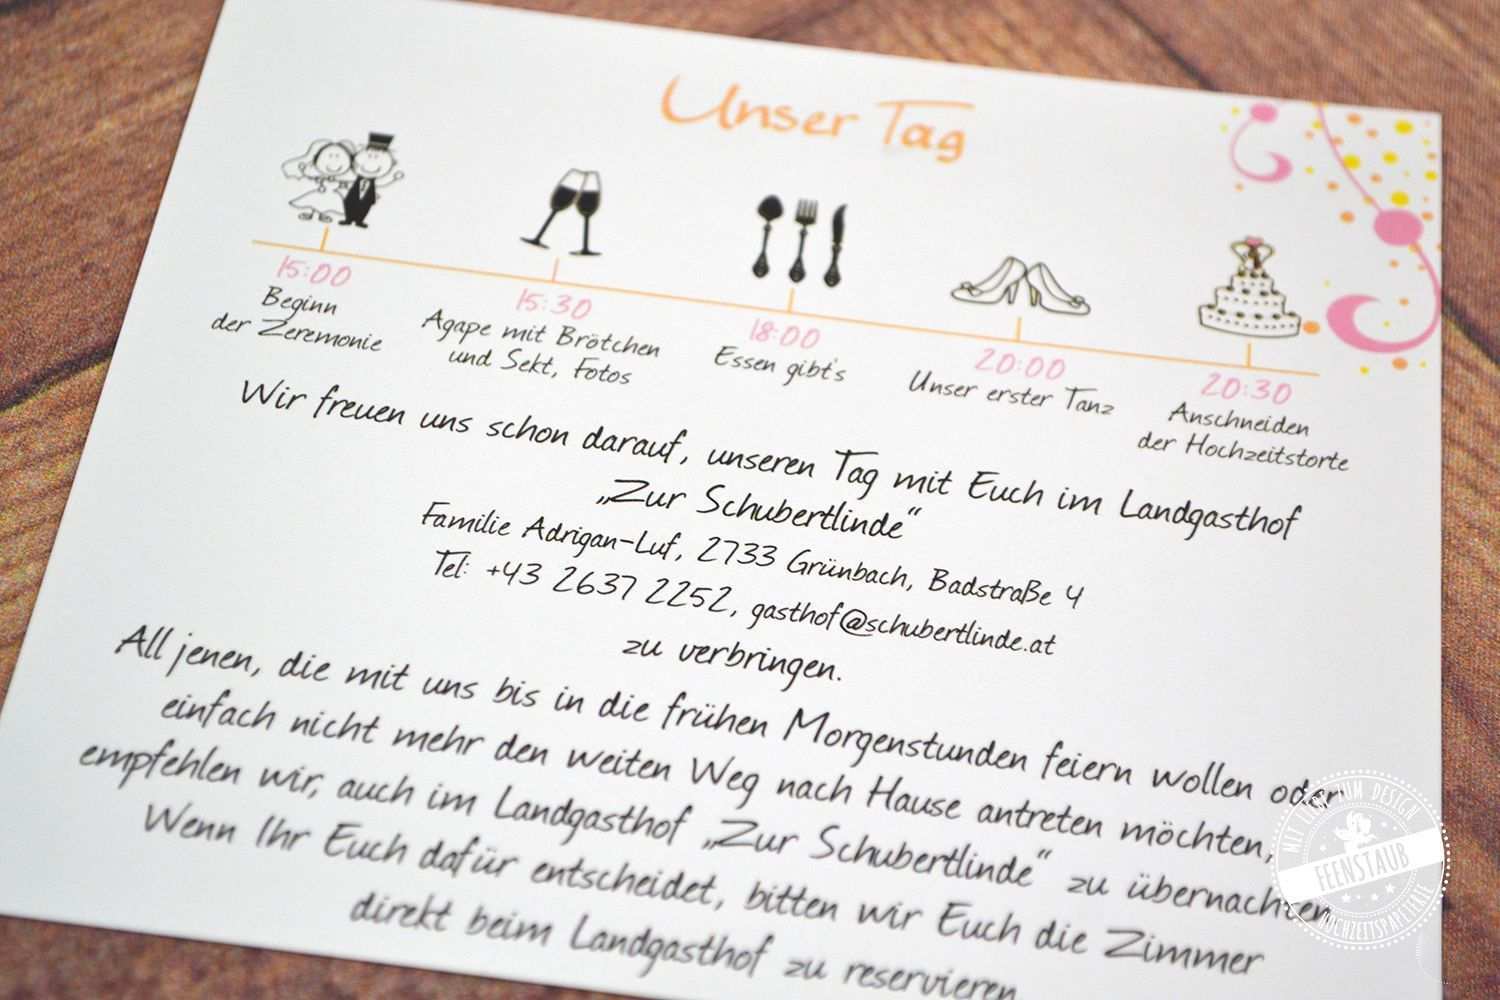 Unser Tag
15:00
Beginn
der Zeremonie
15:30
Agape mit Brötchen
und Sekt, Fotos
18:00
Essen gibt's
20:00
Unser erster Tanz
20:30
Anschneiden
der Hochzeitstorte
Wir freuen uns schon darauf, unseren Tag mit Euch im Landgasthof
„Zur Schubertlinde“
Familie Adrigan-Luf, 2733 Grünbach, Badstraße 4
Tel: +43 2637 2252, gasthof@schubertlinde.at
zu verbringen.
All jenen, die mit uns bis in die frühen Morgenstunden feiern wollen oder
einfach nicht mehr den weiten Weg nach Hause antreten möchten,
empfehlen wir, auch im Landgasthof „Zur Schubertlinde“ zu übernachten.
Wenn Ihr Euch dafür entscheidet, bitten wir Euch die Zimmer
direkt beim Landgasthof zu reservieren.
MIT LIEBE ZUM DESIGN
FEENSTAUB
HOCHZEITSPAPETERIE